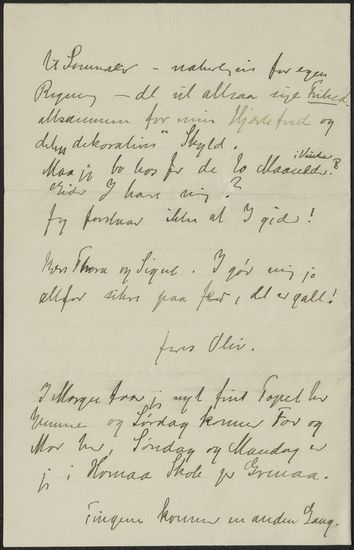 til Sommer – naturligvis for egen
Regning – det vil altsaa sige Frihed
altsammen for min Hjertefred og
det „dekorative“ Skyld.
Maa jeg bo hos Jer de to Maaneder?
i Vinter
Gider I have mig?
Jeg forstaar ikke at I gider!
Kys Thora og Sigut. I gør mig jo
altfor sikre paa Jer, det er galt!
Jeres Oliv.
I Morgen faar jeg nyt fint Tapet her
hjemme og Lørdag kommer Far og
Mor her, Søndag og Mandag er
jeg i Hornaa Skole
Tingene kommer en anden Gang.